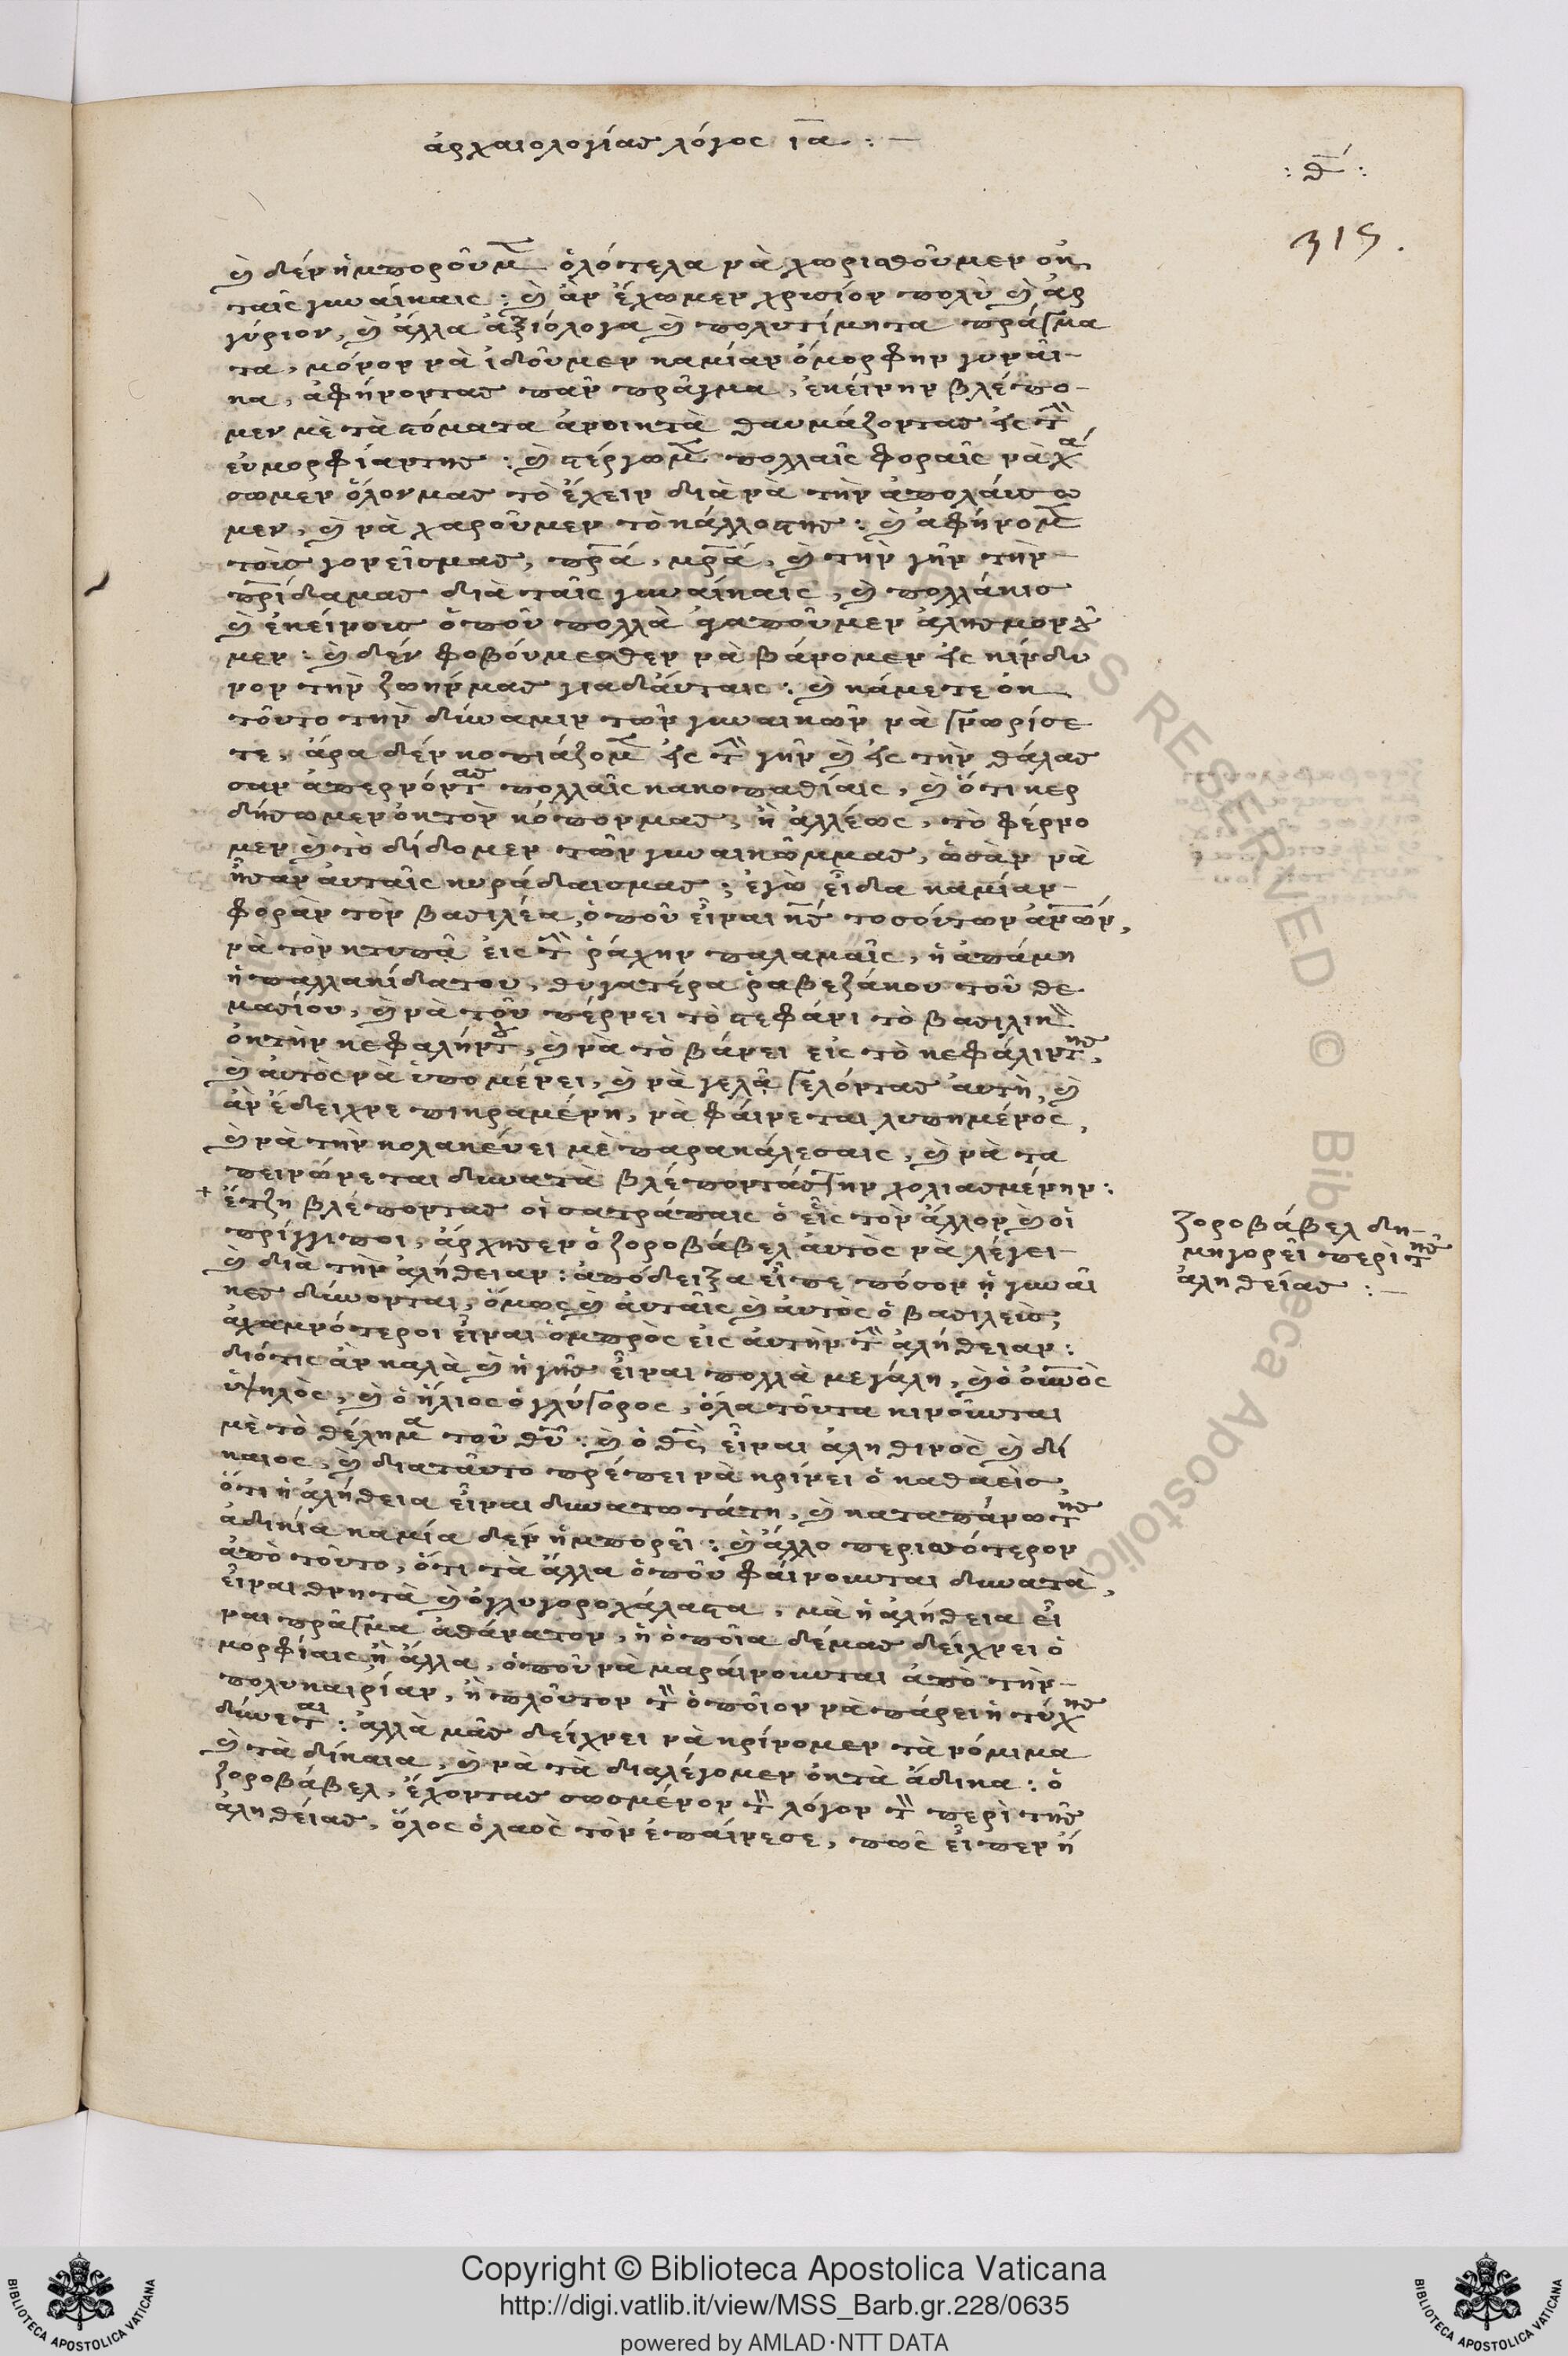 ἀρχαιολογίας λόγος ια :
: θ :
315.
καὶ δὲν ἡμποροῦμεν ὁλότελα νὰ χωρισθοῦμεν ὀκ
ταῖς γυναίκαις : καὶ ἂν ἔχωμεν χρισίον πολὺ καὶ ἀρ
γύριον, καὶ ἄλλα ἀξιόλογα καὶ πολυτίμητα πράγμα
τα, μόνον νὰ ἰδοῦμεν καμίαν ὄμορφην γυναῖ
κα, ἀφήνοντας πᾶν πρᾶγμα, ἐκείνην βλέπο
μεν μὲ τὰ στόματα ἀνοικτὰ θαυμάζοντας εἰς τὴν
εὐμορφίαντης : καὶ στέργωμεν πολλαῖς φοραῖς νὰ χά
σωμεν ὅλονμας τὸ ἔχειν διὰ νὰ τὴν ἀπολάυσω
μεν, καὶ νὰ χαροῦμεν τὸ κάλλοστης : καὶ ἀφήνομεν
τοὺς γονεῖσμας, πρα, μρα, καὶ τὴν γῆν τὴν
πρίδαμας διὰ ταῖς γυναίκαις, καὶ πολλάκις
καὶ ἐκείνους ὁποῦ πολλὰ γαποῦμεν ἀλησμονοῦ
μεν : καὶ δὲν φοβούμεσθεν νὰ βάνομεν εἰς κίνδυ
νον τὴν ζωήνμας γιαδἀύταις : καὶ κάμετε ὀκ
τοῦτο τὴν δύναμιν τῶν γυναικῶν νὰ γνωρίσε
τε, ἄρα δὲν κοπιάζομεν εἰς τὴν γῆν καὶ εἰς τὴν θάλασ
σαν ἀπερνόντας πολλαῖς κακοπαθίαις, καὶ ὅτι κερ
δήσωμεν ὀκτὸν κόπονμας, ἢ ἀλλέως, τὸ φέρνο
μεν καὶ τὸ δίδομεν τῶν γυναικῶμμας, ὡσὰν νὰ
ἦσαν ἀυταῖς κυράδαισμας ; ἐγὼ εἶδα καμίαν
φορὰν τὸν βασιλέα, ὁποῦ εἶναι κς τοσούτων ανων,
νὰ τὸν κτυπᾶ εἰς τὴν ῥάχην παλαμαῖς, ἡ ἀπάμη
ἡ παλλακίδατου, θυγατέρα ῥαβεζάκου τοῦ θε
μασίου, καὶ νὰ τοῦ πέρνει τὸ στεφάνι τὸ βασιλικὸν
ὀκτὴν κεφαλήντου, καὶ νὰ τὸ βάνει εἰς τὸ κεφάλιντης,
καὶ ἀυτὸς νὰ ὑπομένει, καὶ νὰ γελᾶ γελόντας ἀυτὴ, καὶ
ἂν ἔδειχνε πικραμένη, νὰ φάινεται λυπημένος,
καὶ νὰ τὴν κολακεύει μὲ παρακάλεσαις, καὶ νὰ τα
πεινώνεται δυνατὰ βλέποντάςτην χολιασμένην :
+ ἔτζη βλέποντας οἱ σατράπαις ὁ εἷς τὸν ἄλλον καὶ οἱ
πρίγγιποι, ἄρχησεν ὁ ζοροβάβελ ἀυτὸς νὰ λέγει
καὶ διὰ τὴν ἀλήθειαν : ἀπόδειξα εἶπε πόσον ἡ γυναῖ
κες δύνονται, ὅμως καὶ ἀυταῖς καὶ ἀυτὸς ὁ βασιλεὺς,
ἀχαμνότεροι εἶναι ὀμπρὸς εἰς ἀυτὴν τὴν ἀλήθειαν :
διότις ἂν καλὰ καὶ ἡ γῆς εἶναι πολλὰ μεγάλη, καὶ ὁ οὐνος
ὑψηλὸς, καὶ ὁ ἥλιος ὁ γλύγορος, ὅλα τοῦτα κινοῦνται
μὲ τὸ θέλημα τοῦ θυ : καὶ ὁ θς εἶναι ἀληθινὸς καὶ δί
καιος, καὶ διαταῦτο πρέπει νὰ κρίνει ὁ καθαεὶς
ὅτι ἡ ἀλήθεια εἶναι δυνατωτάτη, καὶ καταπάνωτης
ἀδικία καμία δὲν ἡμπορεῖ : καὶ ἄλλο περισσότερον
ἀπὸ τοῦτο, ὅτι τὰ ἄλλα ὁποῦ φάινουνται δυνατὰ,
εἶναι θνητὰ καὶ ὀγλυγοροχάλαστα, μὰ ἡ ἀλήθεια εἶ
ναι πρᾶγμα ἀθάνατον, ἡ ὁποῖα δέμας δείχνει ὀ
μορφίαις ἢ ἄλλα, ὁποῦ νὰ μαράινουνται ἀπὸ τὴν
πολυκαιρίαν, ἢ πλοῦτον τὸν ὁποῖον νὰ πάρει ἡ τύχης
δύνεται : ἀλλὰ μᾶς δείχνει νὰ κρίνομεν τὰ νόμιμα
καὶ τὰ δίκαια, καὶ νὰ τὰ διαλέγομεν ὀκτὰ ἄδικα : ὁ
ζοροβάβελ, ἔχοντας σωσμένον τὸν λόγον τὸν περὶ τῆς
ἀληθείας, ὅλος ὁ λαὸς τὸν ἐπάινεσε, πῶς εἶπεν ἡ
ζοροβάβελ δη
μηγορεῖ περὶ τῆς
ἀληθείας :
Copyright © Biblioteca Apostolica Vaticana
http://digi.vatlib.it/view/MSS_Barb.gr.228/0635
powered by AMLAD·NTT DATA
BIBLIOTECA APOSTOLICA VATICANA
BIBLIOTECA APOSTOLICA VATICANA